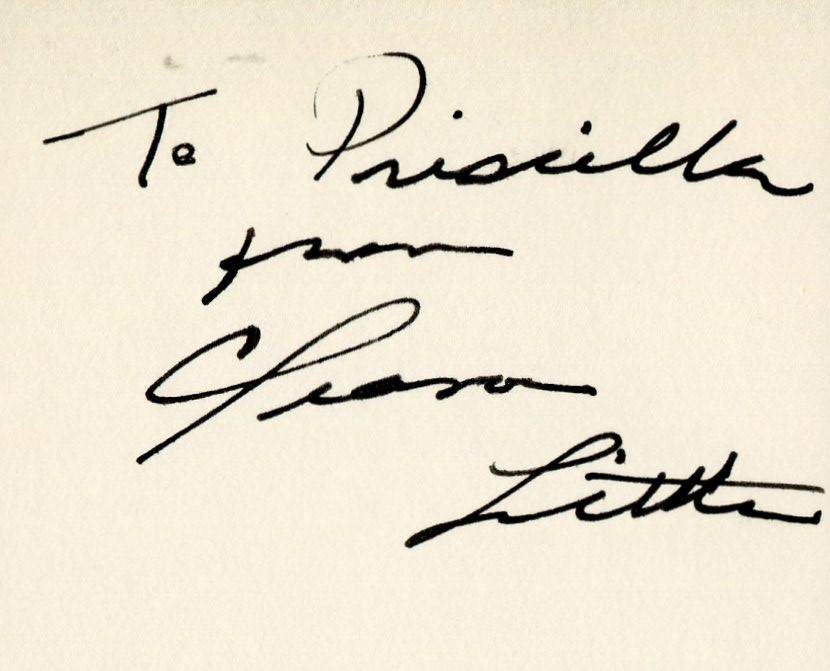 To Priscilla
from
Cleavon
Little